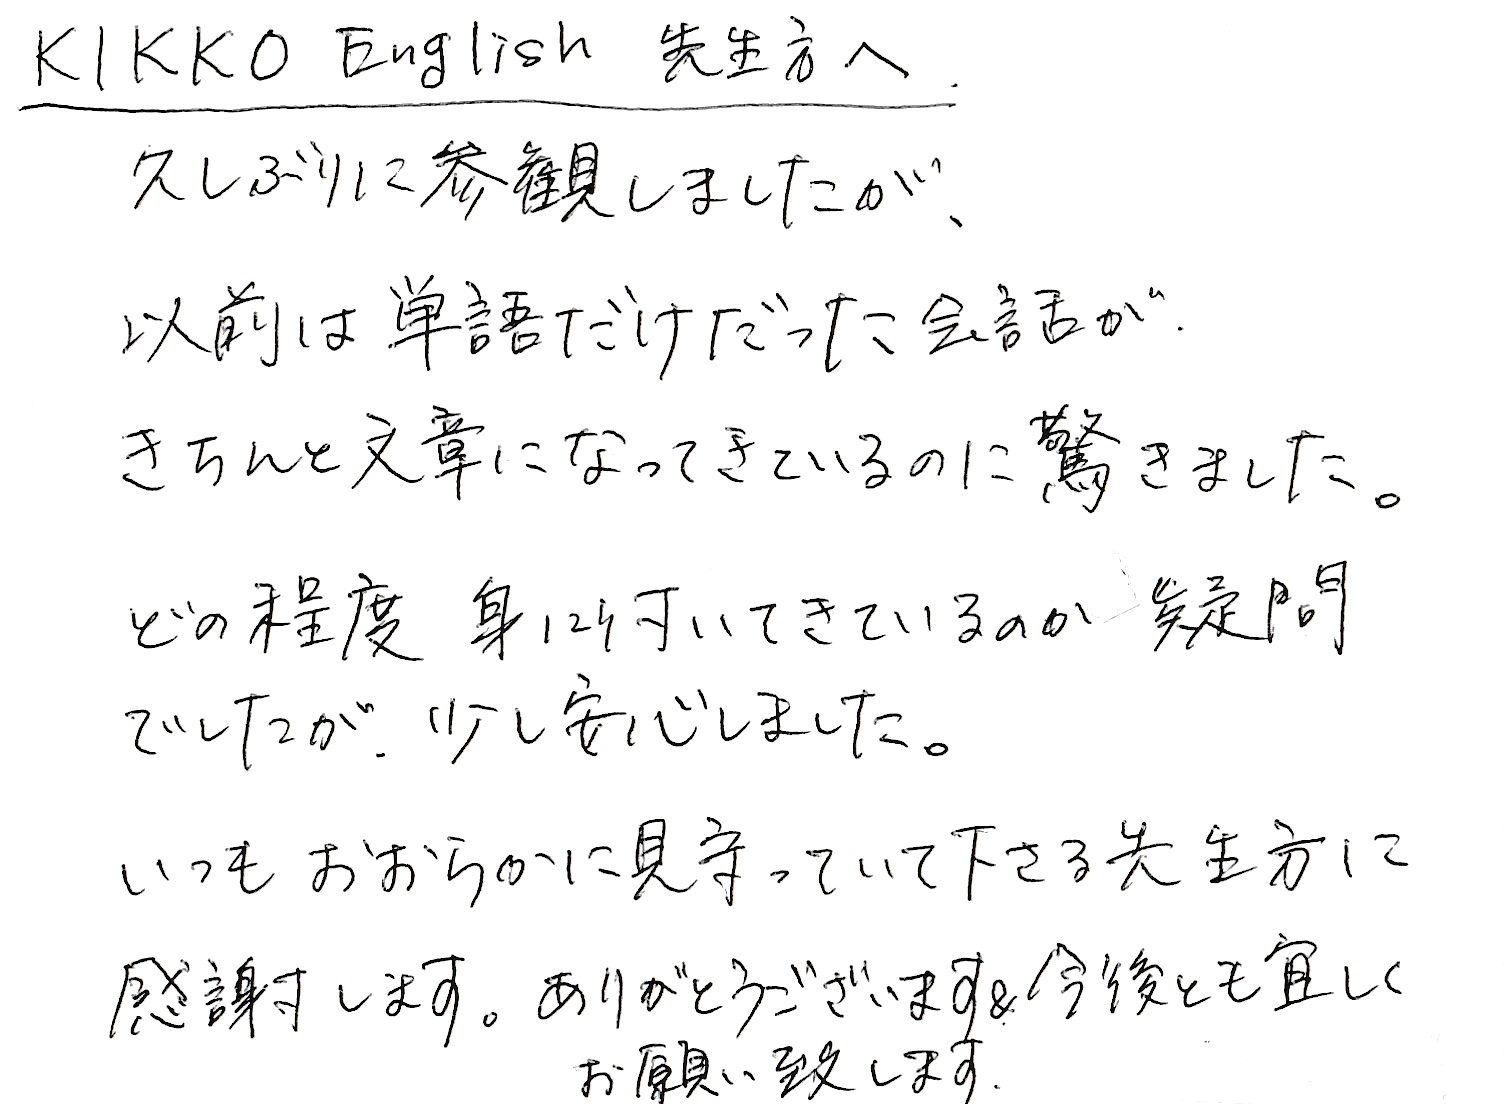 KIKKO English 先生方へ.
久しぶりに参観しましたが、
以前は単語だけだった会話が.
きちんと文章になってきているのに驚きました。
どの程度 身に付いてきているのか 疑問
でしたが. 少し安心しました。
いつも おおらかに見守っていて下さる先生方に
感謝します。ありがとうございます&今後とも宜しく
お願い致します.